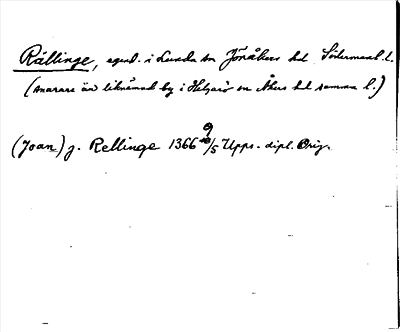 Rällinge, egend. i Lunda sn Jönåkers hd Södermanl. l.
(snarare än liknämnd by i Helgarö sn Åkers hd samma l.)
(Joan) j. Rellinge 1366 9/5 Upps. dipl. Orig.